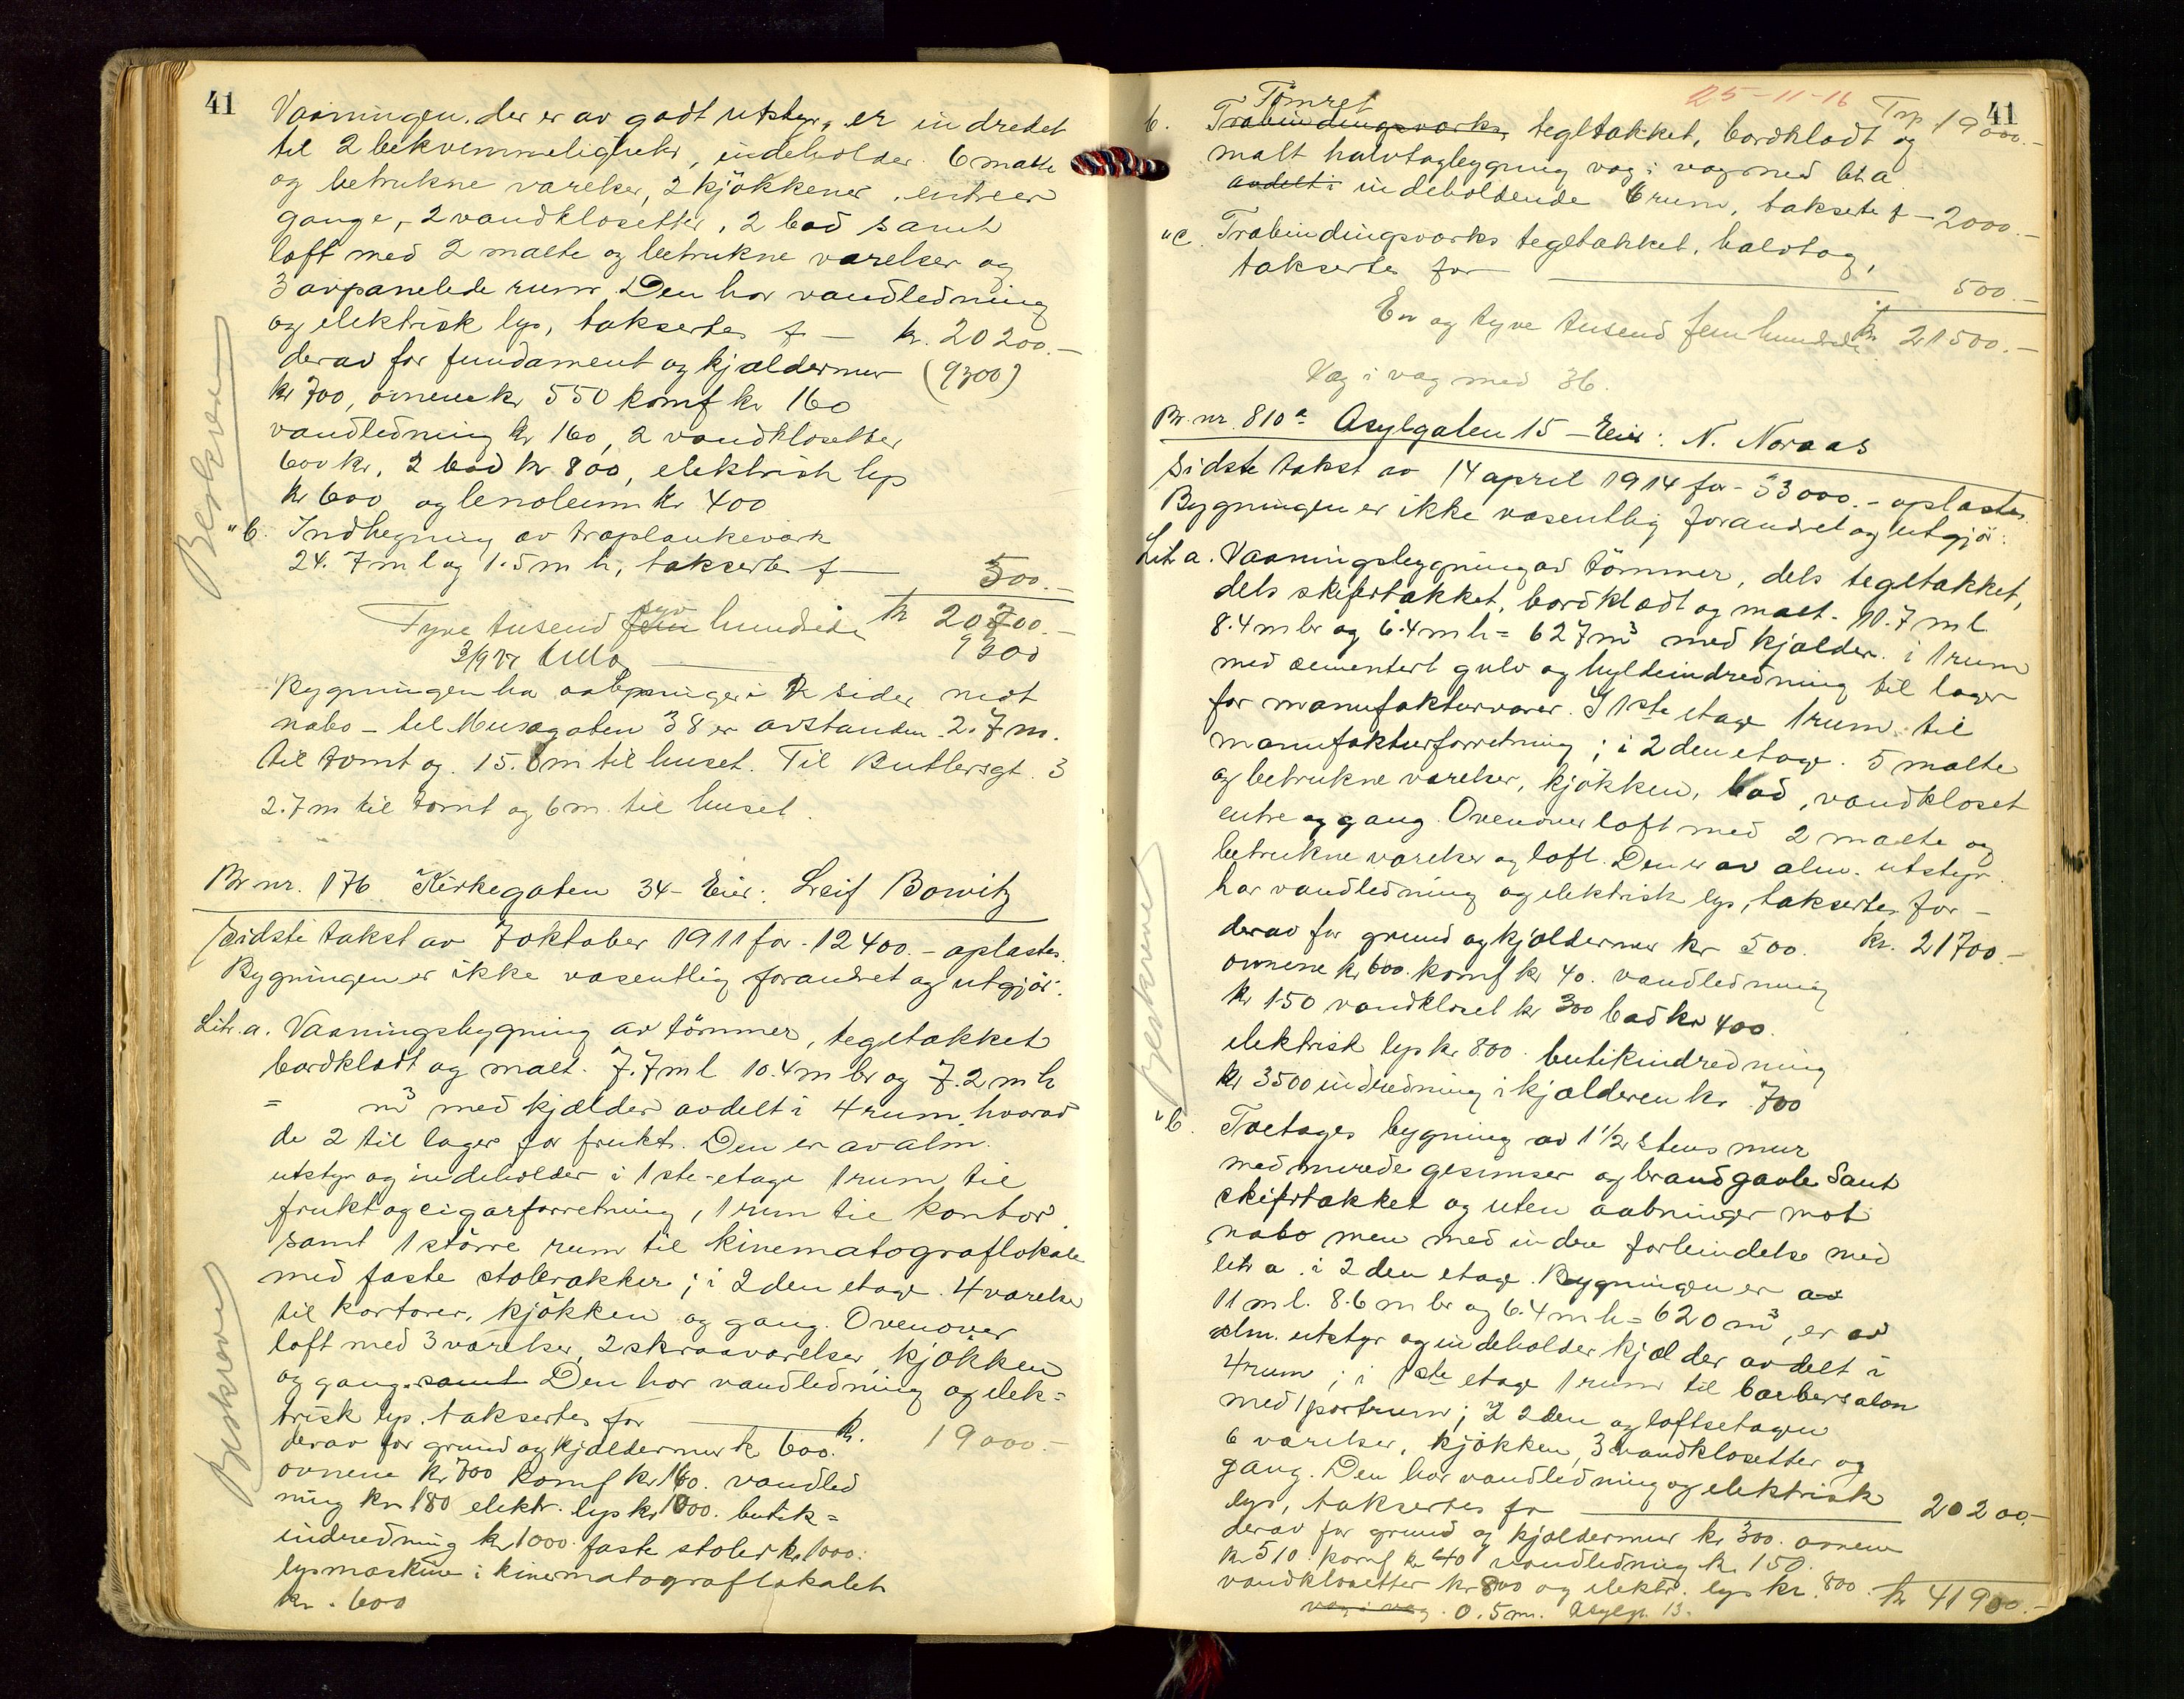 41
Vaaningen, der er av godt utstyr, er indredet
til 2 bekvemmeligheter, indeholder 6 malte
og betrukne værelser, 2 kjökkener, entreer
gange, 2 vandklosetter, 2 bad samt
loft med 2 malte og betrukne værelser og
3 avpanelede rum. Den har vandledning
og elektrisk lys, taksertes f — kr. 20200.—
derav for fundament og kjældermur (9300)
kr 700, ovnene kr 550 komf kr 160
vandledning kr 160, 2 vandklosetter
600 kr, 2 bad kr 800, elektrisk lys
kr 600 og lenoleum kr 400
Beskrevet
" b. Indhegning av træplankeværk
24.7 m l og 1.5 m h, taksertes f — 500.—
Tyve tusend fem syv hundrede kr 20700.—
9300
Bygningen har aabninger i 2 sider mot
nabo – til Musegaten 38 er avstanden 2.7 m.
til tomt og 15.8 m til huset. Til Butlersgt. 3
2.7 m til tomt og 6 m. til huset.
Br nr. 176 Kirkegaten 34 – Eier: Leif Bowitz
Sidste takst av 7 oktober 1911 for 12400.– oplæstes.
Bygningen er ikke væsentlig forandret og utgjör:
Litr. a. Vaaningsbygning av tömmer, tegltækket
bordklædt og malt. 7.7 m l 10.4 m br og 7.2 m h
= m³ med kjælder avdelt i 4 rum, hvorav
de 2 til lager for frukt. Den er av alm.
utstyr og indeholder i 1ste etage 1 rum til
frukt og cigarforretning, 1 rum til kontor
samt 1 större rum til kinematograflokale
med faste stolerækker; i 2den etage 4 værelser
til kontorer, kjökken og gang. Ovenover
loft med 3 værelser, 2 skraaværelser, kjökken
og gang. samt Den har vandledning og elek=
trisk lys. taksertes for — kr. 19000.—
derav for grund og kjældermur kr 600.
ovnene kr 700 komf kr 160. vandled
ning kr 180 elektr. lys kr 1000. butik=
indredning kr 1000. faste stoler kr. 1000.
lysmaskine i kinematograflokalet
kr. 600
Beskrevet
41
25-11-16
Trp. 19000.—
b. Træbindingsværks Tömret tegltækket, bordklædt og
malt halvtagbygning væg i væg med lit a
avdelt i indeholdende 6 rum, taksertes f — 2000.—
" c. Træbindingsværks tegltækket, halvtag,
taksertes for — 500.—
En og tyve tusend fem hundrede kr 21500.—
Væg i væg med 36.
Br. nr. 810ª Asylgaten 15 – Eier: N. Noraas
Sidste takst av 14 april 1914 for 33000.– oplæstes.
Bygningen er ikke væsentlig forandret og utgjör:
Litr a. Vaaningsbygning av tömmer, dels tegltækket,
dels skifertækket, bordklædt og malt. 10.7 m l
8.4 m br og 6.4 m h = 627 m³ med kjælder i 1 rum
med sementert gulv og hyldeindredning til lager
for manufakturvarer. I 1ste etage 1 rum til
manufakturforretning; i 2den etage 5 malte
og betrukne værelser, kjökken, bad, vandkloset
entre og gang. Ovenover loft med 2 malte og
betrukne værelser og loft. Den er av alm. utstyr.
har vandledning og elektrisk lys, taksertes for —
derav for grund og kjældermur kr 500. kr. 21700.—
ovnene kr 600. komf kr 40. vandledning
kr 150 vandkloset kr 300 bad kr 400.
elektrisk lys kr 800. butikindredning
kr 3500 indredning i kjælderen kr 700
Beskrevet
" b. Toetages bygning av 1½ stens mur
med murede gesimser og brandgavle samt
skifertækket og uten aabninger mot
nabo men med indre forbindelse med
litr a. i 2den etage. Bygningen er av
11 m l. 8.6 m br og 6.4 m h = 620 m³, er av
alm. utstyr og indeholder kjælder avdelt i
4 rum; i 1ste etage 1 rum til barbersalon
med 1 portrum; I 2den og loftsetagen
6 værelser, kjökken, 3 vandklosetter og
gang. Den har vandledning og elektrisk
lys, taksertes for — 20200.—
derav for grund og kjældermur kr 300. ovnene
kr 510. komf kr 40 vandledning kr. 150.
vandklosetter kr 800 og elektr. lys kr. 800. kr 41900.—
væg i væg 0.5 m. Asylgt. 13.